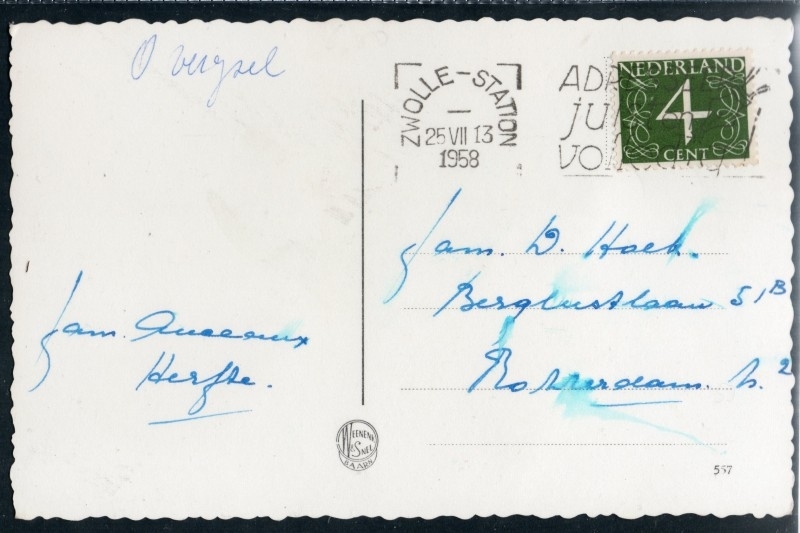 Overysel
ZWOLLE-STATION
25 VII 13
1958
NEDERLAND
4
CENT
fam. D. Hoek.
Berglustlaan 51B
Rotterdam. N.2
fam. Anceaux
Herfte.
WEENENK
& SNEL
BAARN
557